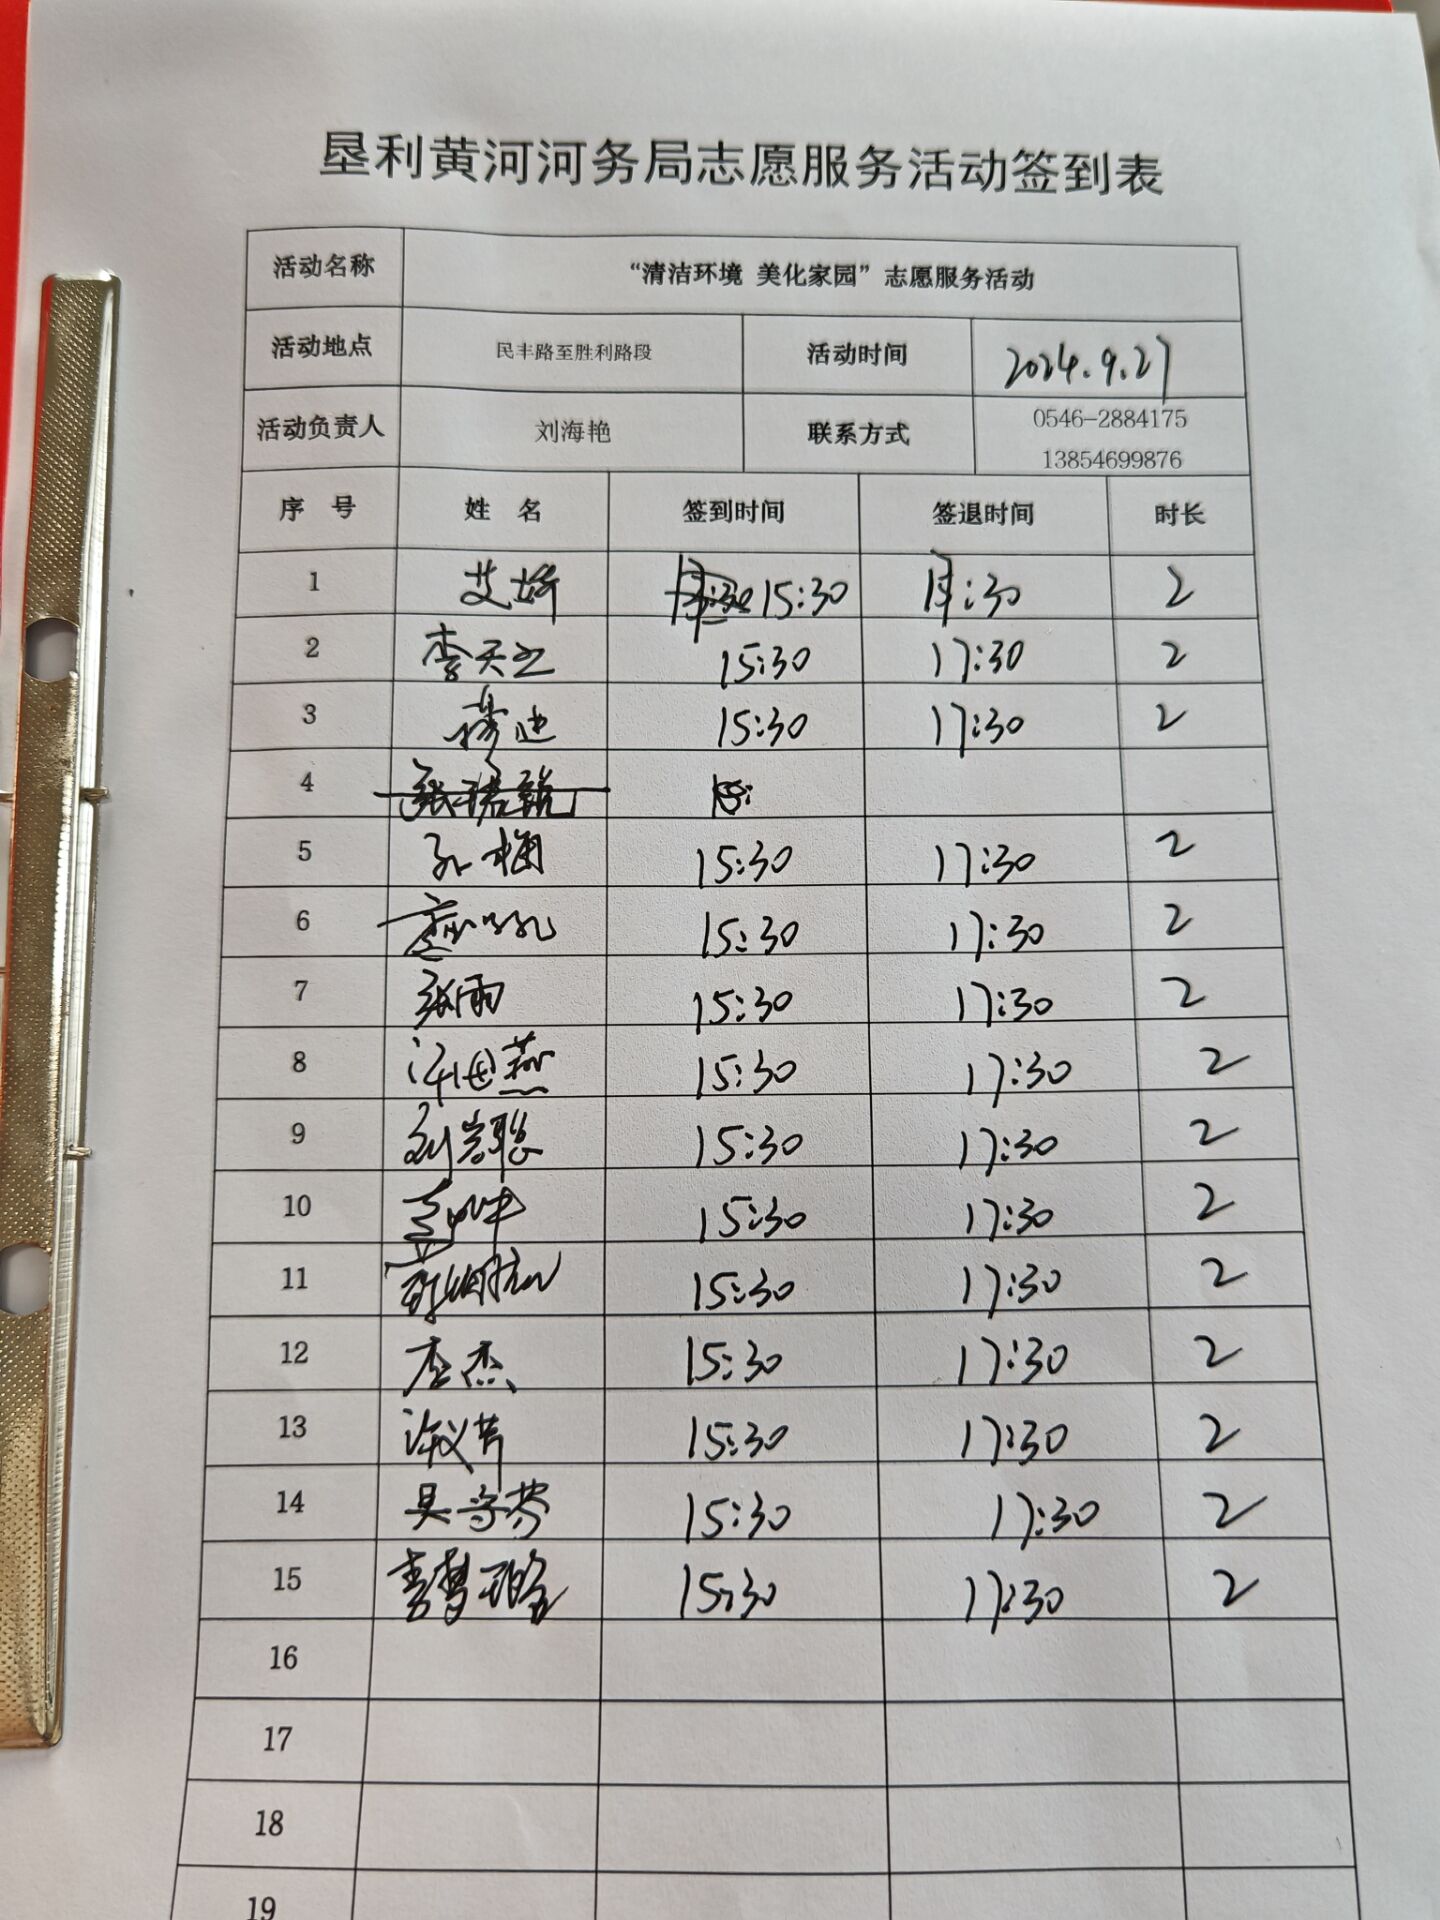 垦利黄河河务局志愿服务活动签到表
活动名称 “清洁环境 美化家园”志愿服务活动
活动地点 民丰路至胜利路段 活动时间 2024.9.27
活动负责人 刘海艳 联系方式 0546-2884175
13854699876
序 号 姓 名 签到时间 签退时间 时长
1 艾娇 15:30 :30 2
2 李天 15:30 17:30 2
3 迪 15:30 17:30 2
4
5 孔梅 15:30 17:30 2
6 15:30 17:30 2
7 张雨 15:30 17:30 2
8 燕 15:30 17:30 2
9 刘 聪 15:30 17:30 2
10 15:30 17:30 2
11 15:30 17:30 2
12 李杰 15:30 17:30 2
13 许义芳 15:30 17:30 2
14 吴守芬 15:30 17:30 2
15 李梦 15:30 17:30 2
16
17
18
19